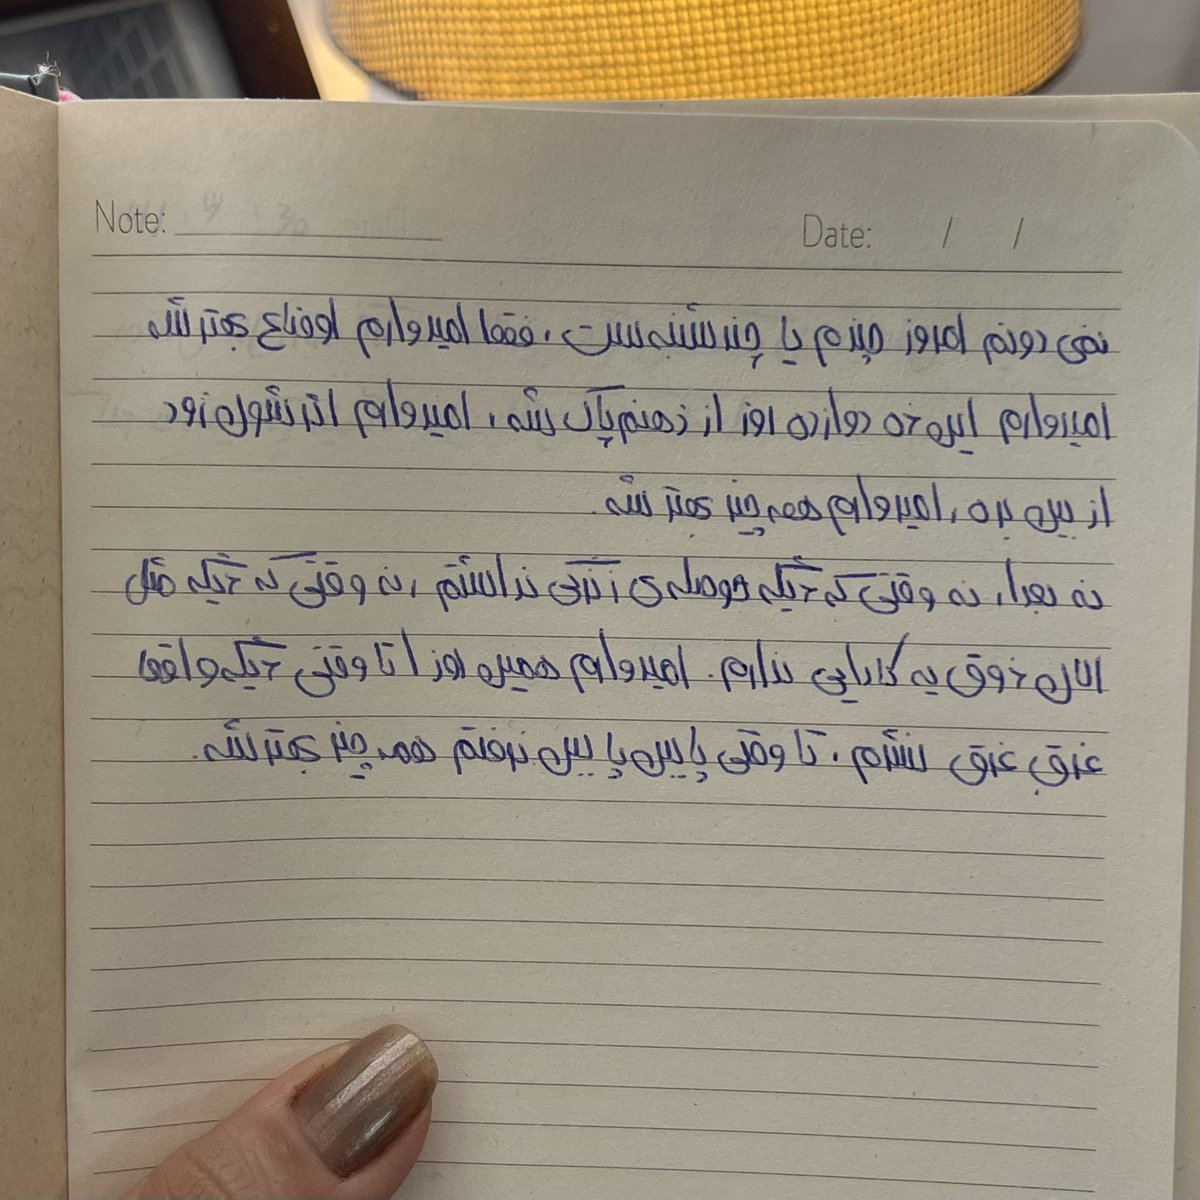 Note:
Date: / /
نمی دونم امروز چندم یا چندشنبه‌ست، فقط امیدوارم اوضاع بهتر شه
امیدوارم این ده دوازده روز از ذهنم پاک بشه، امیدوارم استرسُ زود
از بین بره، امیدوارم همه چیز بهتر شه.
نه بعدا، نه وقتی که دیگه حوصله‌ی انرژی نداشتم، نه وقتی که دیگه مثل
الان ذوق یه کارایی ندارم. امیدوارم همین روزا تا وقتی دیگه واقعا
غرق غرق نشدم، تا وقتی پایین پایین نرفتم همه چیز بهتر شه.